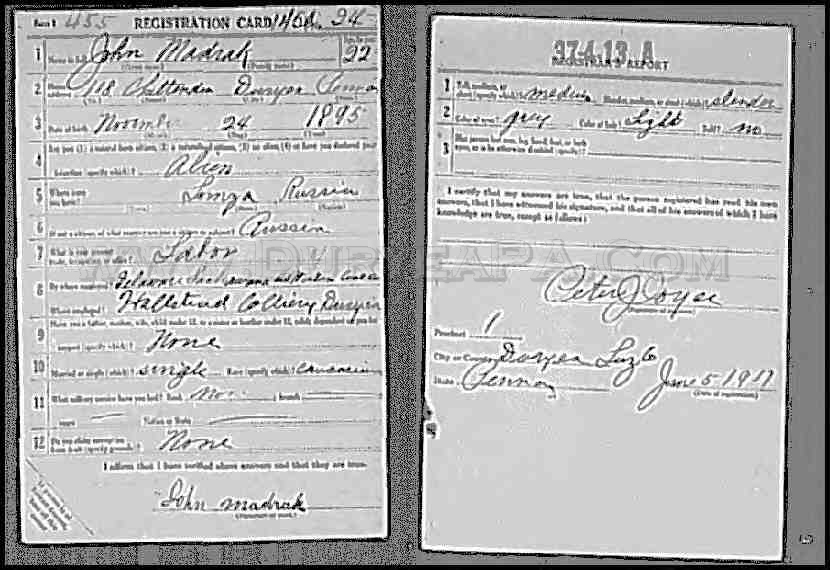 Form 1 455 REGISTRATION CARD No. 24
1 Name in full John Madrak Age, in yrs. 22
(Given name) (Family name)
2 Home address 118 Chittenden Duryea Penna
(No.) (Street) (City)
3 Date of birth November 24 1895
(Month) (Day) (Year)
4 Are you (1) a natural born citizen, (2) a naturalized citizen, (3) an alien, (4) or have you declared your
intention (specify which)? Alien
5 Where were you born? Lomza Russia
(Town) (State) (Nation)
6 If not a citizen, of what country are you a citizen or subject? Russia
7 What is your present trade, occupation, or office? Labor
8 By whom employed? Delaware Lackawana and Western Coal Co
Where employed? Hallstead Colliery Duryea
9 Have you a father, mother, wife, child under 12, or a sister or brother under 12, solely dependent on you for
support (specify which)? None
10 Married or single (which)? single Race (specify which)? Caucasian
11 What military service have you had? Rank No branch
years Nation or State
12 Do you claim exemption from draft (specify grounds)? None
I affirm that I have verified above answers and that they are true.
John Madrak
37-4-13 A
REGISTRAR'S REPORT
1 Tall, medium, or short (specify which)? medium Slender, medium, or stout (which)? slender
2 Color of eyes? grey Color of hair? Light Bald? no
3 Has person lost arm, leg, hand, foot, or both eyes, or is he otherwise disabled (specify)?
I certify that my answers are true, that the person registered has read his own
answers, that I have witnessed his signature, and that all of his answers of which I have
knowledge are true, except as follows:
WWW.DURYEAPA.COM
Peter J Joyce
(Signature of registrar)
Precinct 1
City or County Duryea Luz Co
State Penna June 5 1917
(Date of registration)